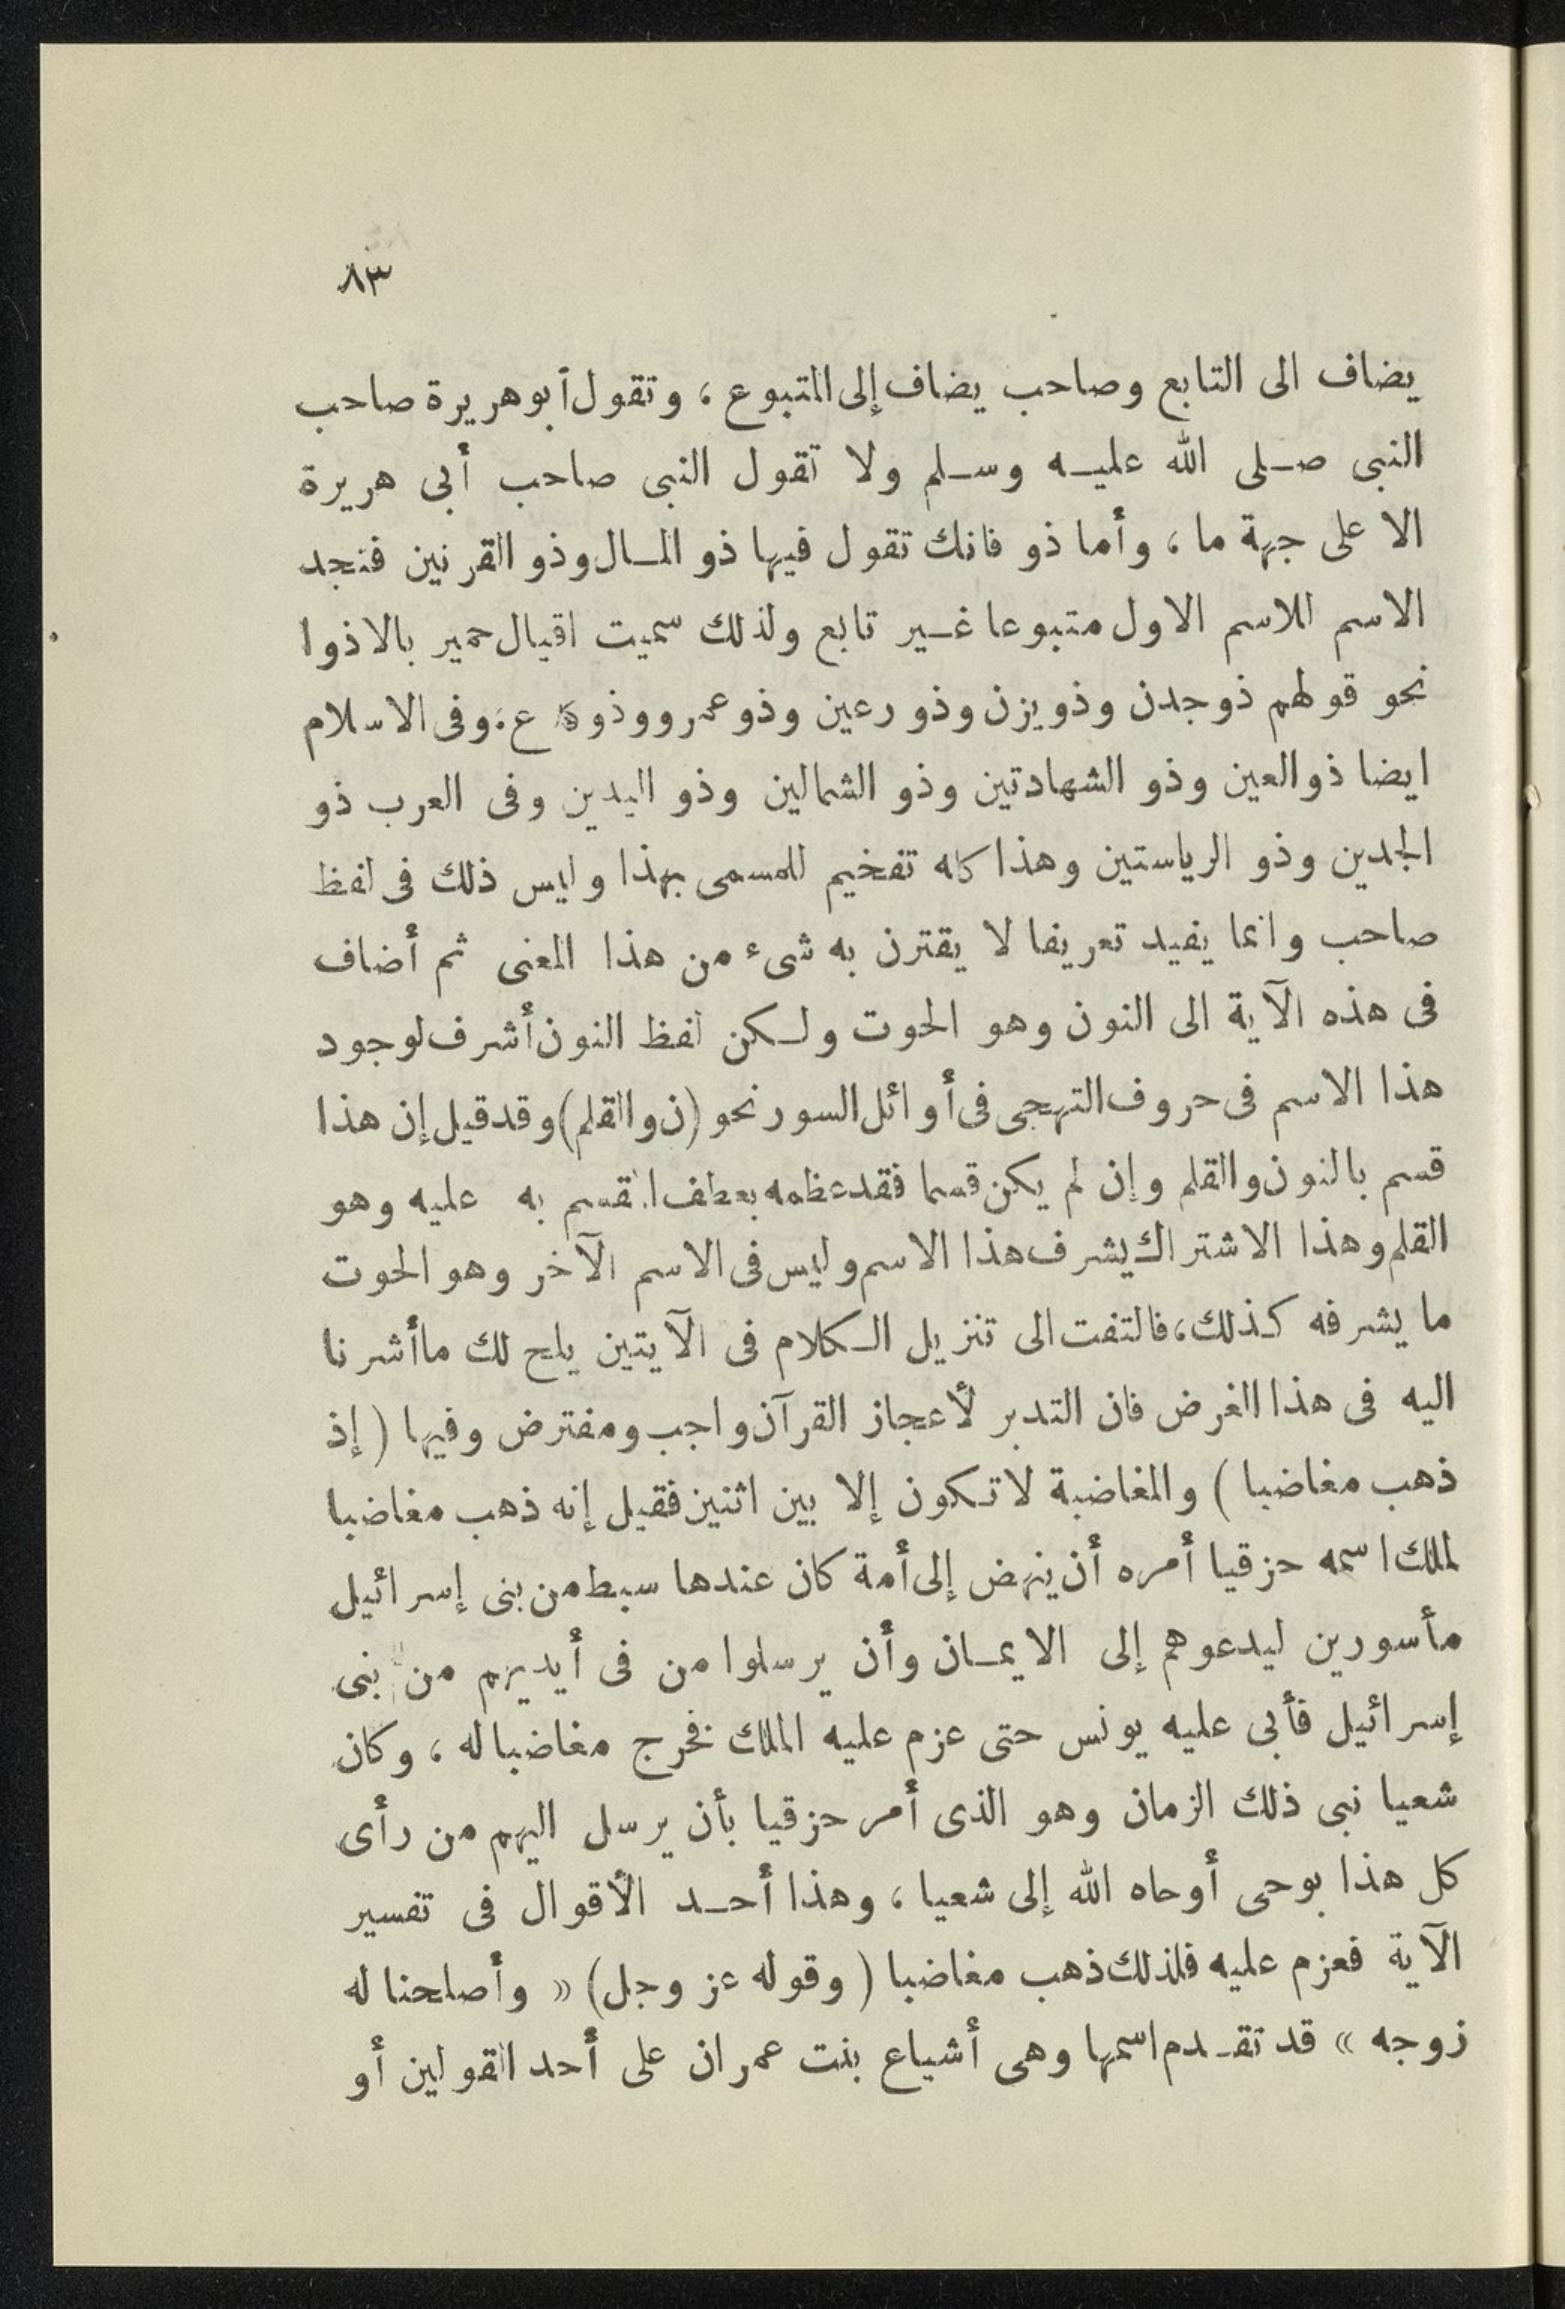 ٨٣
يضاف الى التابع وصاحب يضاف إلى المتبوع ، وتقول أبو هريرة صاحب
النبى صلى الله عليه وسلم ولا تقول النبى صاحب أبى هريرة
الا على جهة ما ، وأما ذو فانك تقول فيها ذو المال وذو القرنين فنجد
الاسم للاسم الاول متبوعا غير تابع ولذلك سميت اقيال حمير بالاذوا
نحو قولهم ذوجدن وذويزن وذو رعين وذو عمرو وذو ع: وفى الاسلام
ايضا ذو العين وذو الشهادتين وذو الشمالين وذو اليدين وفى العرب ذو
الجدين وذو الرياستين وهذا كله تفخيم للمسمى بهذا وليس ذلك فى لفظ
صاحب وانما يفيد تعريفا لا يقترن به شىء من هذا المعنى ثم أضاف
فى هذه الآية الى النون وهو الحوت ولكن لفظ النون أشرف لوجود
هذا الاسم فى حروف التهجى فى أوائل السور نحو (ن والقلم) وقد قيل إن هذا
قسم بالنون والقلم وإن لم يكن قسما فقد عظمه بعطف المقسم به عليه وهو
القلم وهذا الاشتراك يشرف هذا الاسم وليس فى الاسم الآخر وهو الحوت
ما يشرفه كذلك، فالتفت الى تنزيل الكلام فى الآيتين يلح لك ماأشرنا
اليه فى هذا الغرض فان التدبر لأعجاز القرآن واجب ومفترض وفيها ( إذ
ذهب مغاضبا ) والمغاضبة لا تكون إلا بين اثنين فقيل إنه ذهب مغاضبا
لملك اسمه حزقيا أمره أن ينهض إلى أمة كان عندها سبط من بنى إسرائيل
مأسورين ليدعوهم إلى الايمان وأن يرسلوا من فى أيديهم من بنى
إسرائيل فأبى عليه يونس حتى عزم عليه الملك فخرج مغاضبا له ، وكان
شعيا نبى ذلك الزمان وهو الذى أمر حزقيا بأن يرسل اليهم من رأى
كل هذا بوحى أوحاه الله إلى شعيا ، وهذا أحد الأقوال فى تفسير
الآية فعزم عليه فلذلك ذهب مغاضبا ( وقوله عز وجل) « وأصلحنا له
زوجه » قد تقدم اسمها وهى أشياع بنت عمران على أحد القولين أو